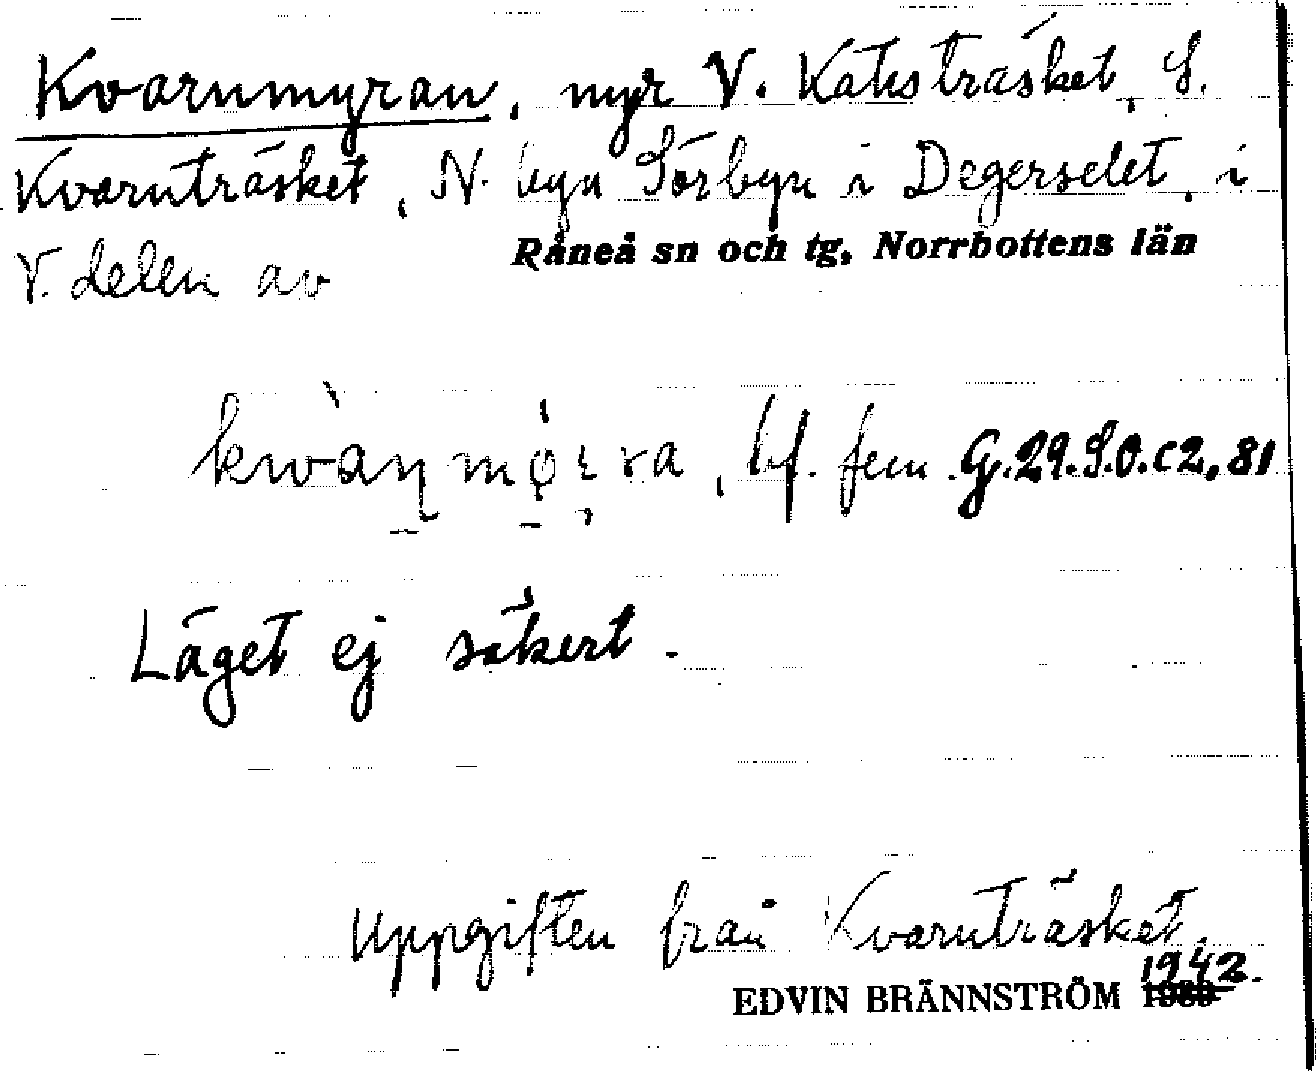 Kvarnmyran, myr V. Katisträsket, S.
Kvarnträsket, N. byn Sörbyn i Degerselet, i
V. delen av Råneå sn och tg, Norrbottens län
bf. fem. G.29.S.O.c2,81
Läget ej säkert.
Uppgiften från Kvarnträsket,
EDVIN BRÄNNSTRÖM 1942.